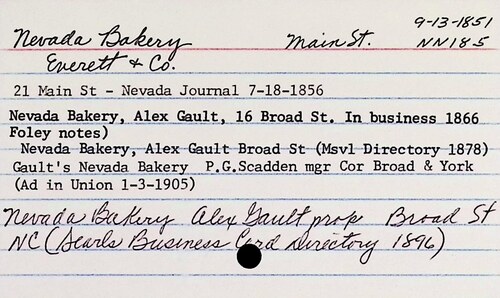 9-13-1851
Nevada Bakery Main St. NN185
Everett & Co.
21 Main St - Nevada Journal 7-18-1856
Nevada Bakery, Alex Gault, 16 Broad St. In business 1866
Foley notes)
Nevada Bakery, Alex Gault Broad St (Msvl Directory 1878)
Gault's Nevada Bakery P.G.Scadden mgr Cor Broad & York
(Ad in Union 1-3-1905)
Nevada Bakery Alex Gault prop Broad St
NC (Searls Business Card Directory 1896)